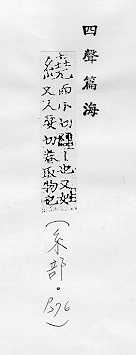 四聲篇海
繞
而小切纏｜也又姓
又人要切卷取物也
(糸部・